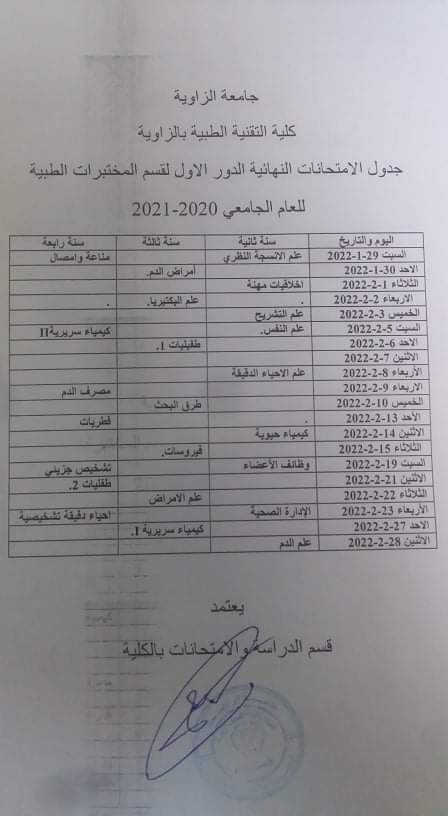 جامعة الزاوية
كلية التقنية الطبية بالزاوية
جدول الامتحانات النهائية الدور الاول لقسم المختبرات الطبية
للعام الجامعي 2020-2021
اليوم والتاريخ سنة ثانية سنة ثالثة سنة رابعة
السبت 29-1-2022 علم الانسجة النظري مناعة وامصال
الاحد 30-1-2022 أمراض الدم.
الثلاثاء 1-2-2022 اخلاقيات مهنة
الاربعاء 2-2-2022 . علم البكتيريا. .
الخميس 3-2-2022 علم التشريح
السبت 5-2-2022 علم النفس. كيمياء سريريةII
الاحد 6-2-2022 طفيليات 1.
الاثنين 7-2-2022
الأربعاء 8-2-2022 علم الاحياء الدقيقة
الاربعاء 9-2-2022 مصرف الدم
الخميس 10-2-2022 طرق البحث
الأحد 13-2-2022 . فطريات
الاثنين 14-2-2022 كيمياء حيوية
الثلاثاء 15-2-2022 فيروسات.
السبت 19-2-2022 وظائف الأعضاء تشخيص جزيئي
الاثنين 21-2-2022 طفليات 2.
الثلاثاء 22-2-2022 علم الامراض
الأربعاء 23-2-2022 الإدارة الصحية احياء دقيقة تشخيصية
الاحد 27-2-2022 كيمياء سريرية I.
الاثنين 28-2-2022 علم الدم
يعتمد
قسم الدراسة والامتحانات بالكلية